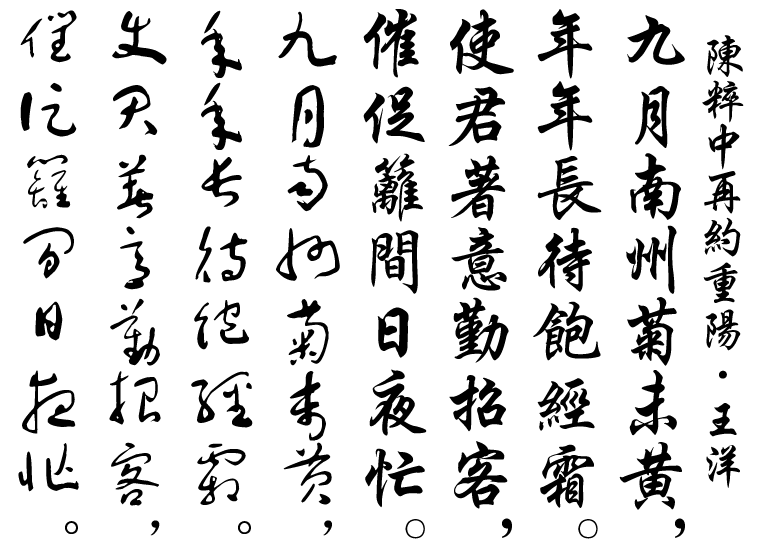 陳粹中再約重陽・王洋
九月南州菊未黃，
年年長待飽經霜。
使君著意勤招客，
催促籬間日夜忙。
九月南州菊未黃，
年年長待飽經霜。
使君著意勤招客，
催促籬間日夜忙。